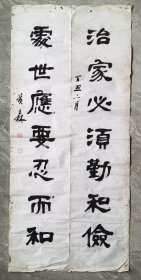 治家必須勤和儉
丁丑二月
處世應要忍而和